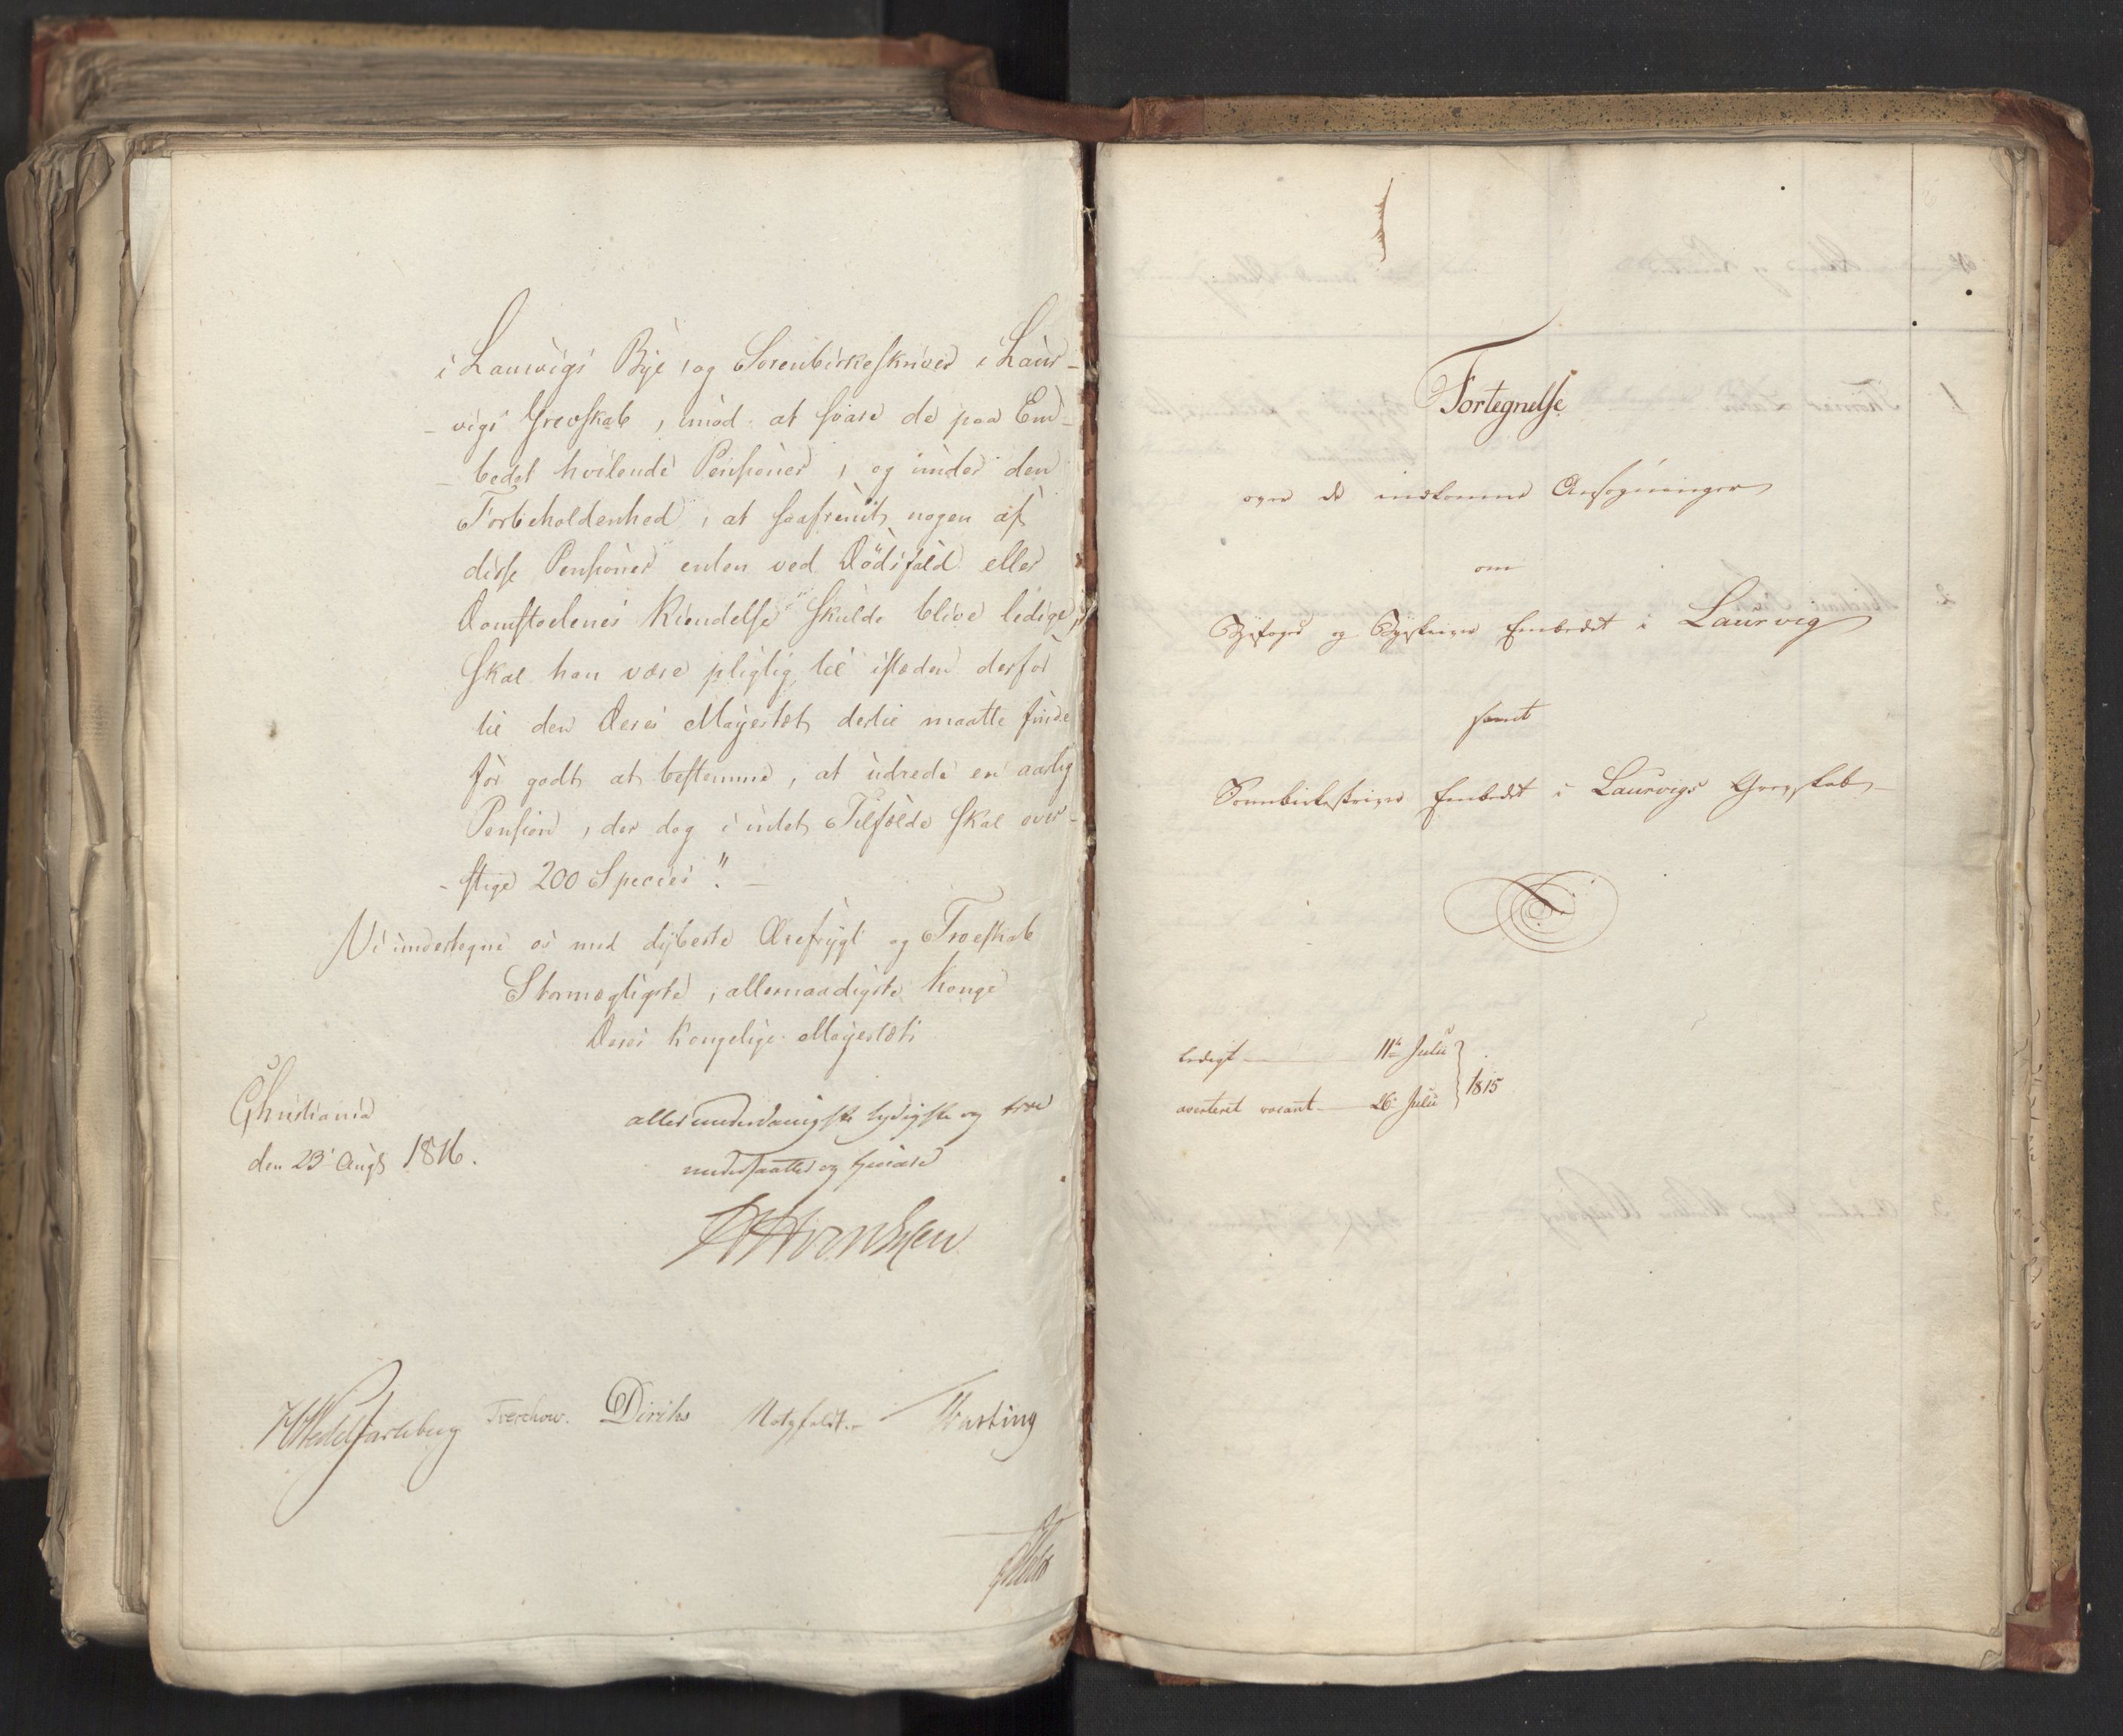 i Laurvigs Bye, og Sorenbirkeskriver i Laur-
-vigs Grevskab, imod at svare de paa Em-
-bedet hvilende Pensioner, og under den
Forbeholdenhed, at saafremt nogen af
disse Pensioner enten ved Dödsfald eller
Domstolenes Kiendelse skulde blive ledige,
skal han være pligtig til istæden derfor
til den Deres Majestæt dertil maatte finde
for godt at bestemme, at udrede en aarlig
Pension, der dog i intet Tilfælde skal over-
-stige 200 Species". -
Vi undertegne os med dybeste Ærefrygt og Troeskab
Stormægtigste, allernaadigste Konge
Deres Kongelige Majestæts
Christiania
den 23' Augs 1816.
allerunderdanigste lydigste og troe
undersaatter og tienere
Wedel Jarlsberg Treschow. Diriks Motzfeldt.- Fasting
Fortegnelse
over de indkomne Ansøgninger
om
Byefoged og Byeskriver Embedet i Laurvig
samt
Sorenbirkeskriver Embedet i Laurvigs Grevskab
ledigt 11te Julii
averteret vacant 26. Julii
1815